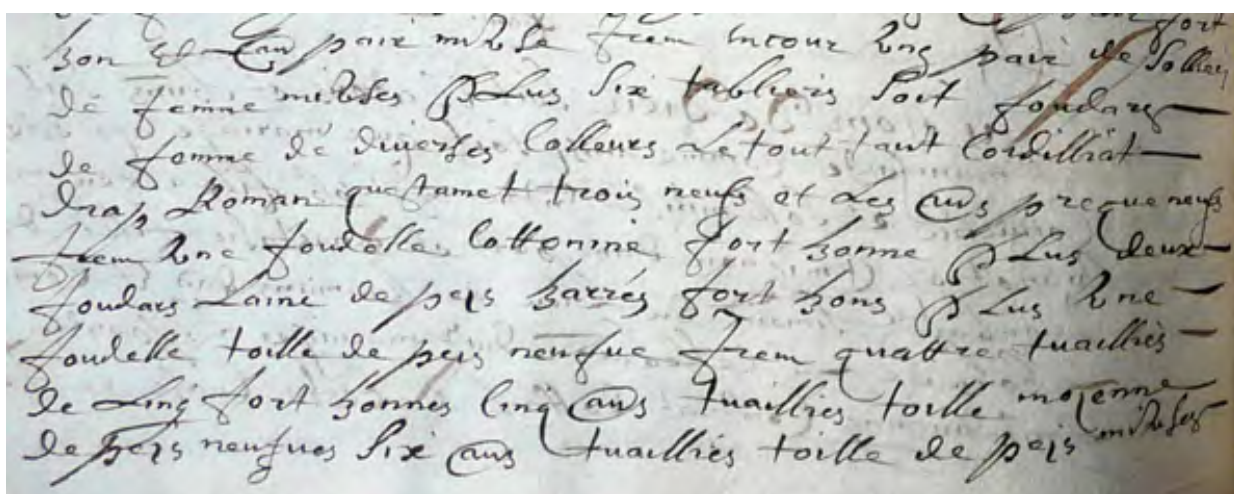 fort
bon et au pair miuse Item encour ung pairé de sollier
de femme miuses Plus six tabliers soit foudars
de fomme de diuerses colleurs le tout tant cordilliat
drap Roman questamet trois neufs et les aus presque neufs
Item une foudelle cottonine fort bonne Plus deux
foudars laine de peis barrés fort bons Plus une
foudelle toille de peis neufue Item quattre tuailliés
de ling fort bonnes cinq aus tuailliés toille moyenne
de peis neufues six aus tuailliés toille de peis miuses